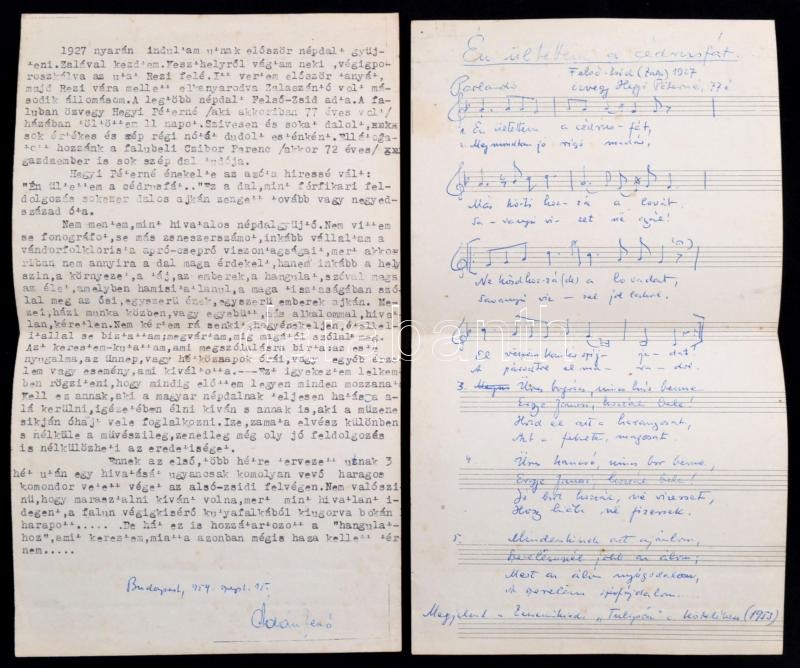 1927 nyarán indultam utnak először népdalt gyüj-
teni.Zalával kezdtem.Keszthelyről vágtam neki ,végigpo-
roszkálva az utat Rezi felé.Itt vertem először tanyát,
majd Rezi vára mellett eltanyarodva Zalaszántó volt
második állomásom.A legtöbb népdalt Felső-Zsid adta.A fa-
luban özvegy Hegyi Péterné /aki akkoriban 77 éves volt/
házában töltöttem 11 napot.Szivesen és sokat dalolt,
sok értékes és szép régi nótát dudolt esténként.
hozzánk a falubeli Czibor Ferenc /akkor 72 éves/
gazdaember is sok szép dal tudója.
Hegyi Péterné énekelte az azóta hiressé vált:
"Én ültettem a cédrusfát.."Ez a dal,mint férfikari fel-
dolgozás sokezer dalos ajkán zengett tovább vagy negyed-
század óta.
Nem mentem,mint hivatalos népdalgyüjtő.Nem vittem
se fonográfot,se más zeneszerszámot,inkább vállaltam a
vándorfolklorista apró-cseprő viszontagságait,mert akko-
riban nem annyira a dal maga érdekelt,hanem inkább a hely
szin,a környezet,a táj,az emberek,a hangulat,szóval maga
az élet,amelyben hamisitatlanul,a maga tisztaságában szó-
lal meg az ősi,egyszerü ének,egyszerü emberek ajkán.Me-
zei,házi munka közben,vagy egyebütt,más alkalommal,hivat
lan,kéretlen.Nem kértem rá senkit
megvártam,mig magától szólal meg.
Azt kerestem-kutattam,ami megszólulásra birta:az esték
nyugalma,az ünnep,vagy hétköznapok órái,vagy egyéb érzé-
lem vagy esemény,ami kiváltotta.---Ezt igyekeztem lelkem-
ben rögziteni,hogy mindig előttem legyen minden mozzanat.
Kell ez annak,aki a magyar népdalnak teljesen hatása
alá kerülni,igézetében élni kiván s annak is,aki a müzene
sikján óhajt vele foglalkozni. Ize,zamata elvész különben
s nélküle a müvészileg,zeneileg még oly jó feldolgozás
is nélkülözheti az eredetiséget.
Ennek az első,több hétre tervezett utnak 3
hét után egy hivatását ugyanosak komolyan vevő haragos
komondor vetett véget az alsó-zsidi felvégen.Nem valószi-
nü,hogy marasztalni kivánt volna,mert mint hivatlan i-
degent,a falun végigkisérő kutyafalkából kiugorva bokán
harapott..... .De hát ez is hozzátartozott a "hangulat-
hoz",amit kerestem,miatta azonban mégis haza kellett tér
nem.....
Budapest, 954. szept. 15.
Ádám Jenő
Én ültettem a cédrusfát.
Felső-Zsid (Zala) 1927
Parlando özvegy Hegyi Péterné, 77 é
1. Én ültettem a cédrusfát,
2. Megmondtam jó rigó madár,
Más köti hoz-zá a lovát.
Sa-vanyú vi- zet ne igyál!
Ne kösd hozzá(de) a lovadat,
Savanyú viz-
3. Üres bögre, nincs hús benne
Eregy János, hozzál bele!
Hidd el azt a haramgosat,
4 Üres kancsó, nincs bor benne,
Eregy János, hozzál bele!
Jó bort hozzál, ne vizeset,
Hogy hiába ne fizessek.
5. Mindenkinek azt ajánlom,
Szerelemnél jobb az álom;
Mert az álom nyugodalom,
A szerelem szivfájdalom.
Megjelent a Zeneműkiadó „Tulipán" c. kötetében (1953)